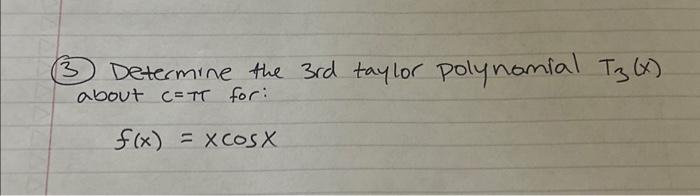 ③ Determine the 3rd taylor polynomial T₃(x)
about c=π for:
f(x) = xcosx